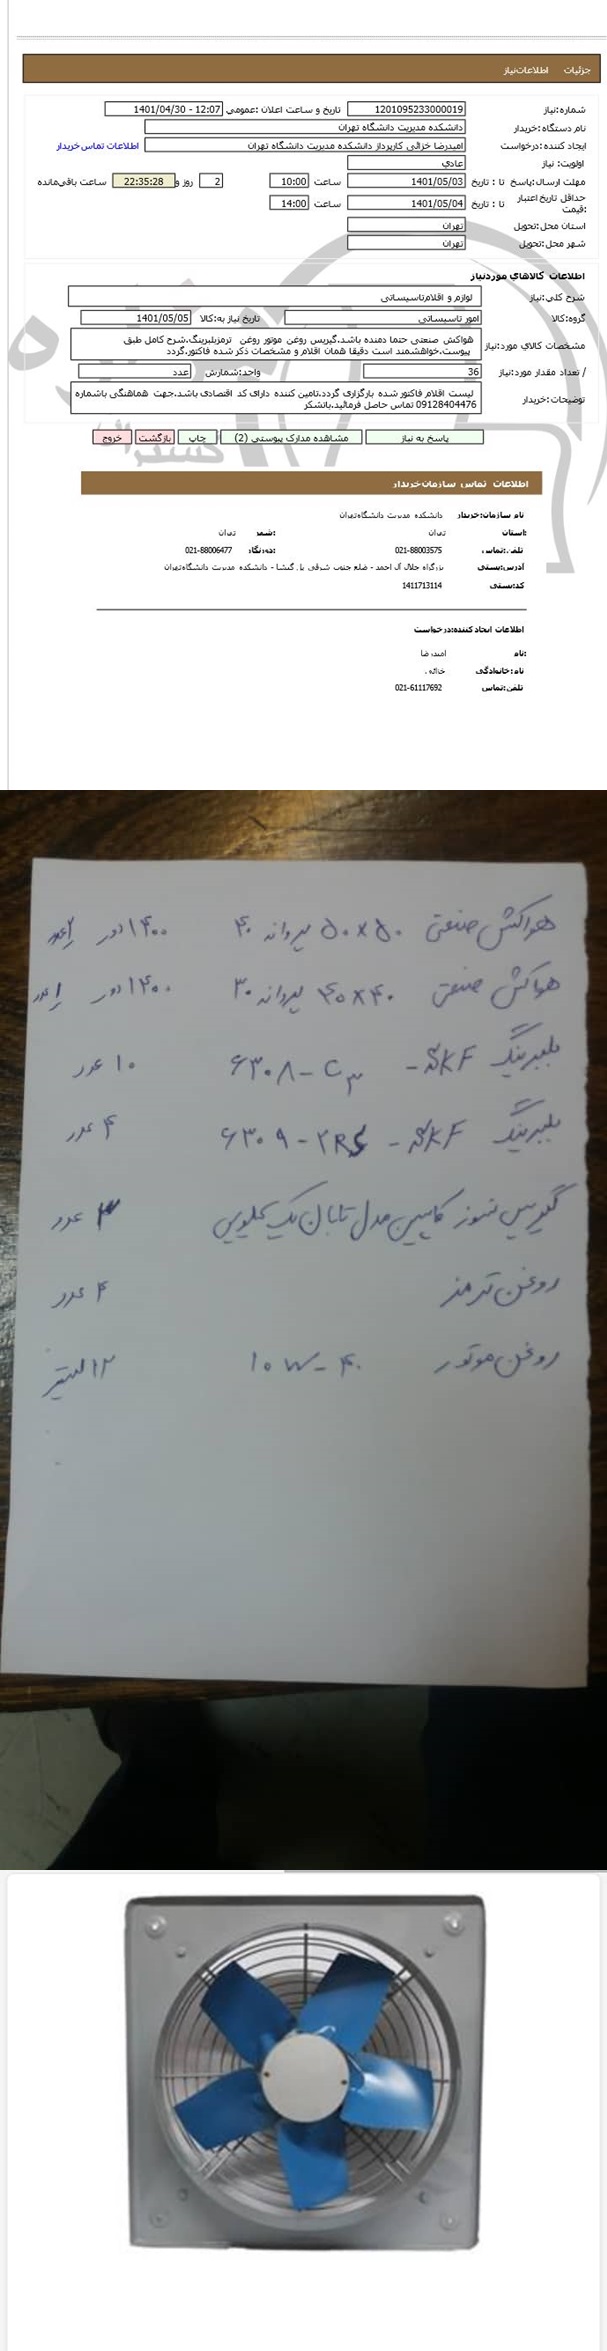 جزئیات اطلاعات نیاز
شماره نیاز: 1201095233000019 تاریخ و ساعت اعلان عمومی: 1401/04/30 - 12:07
نام دستگاه خریدار: دانشکده مدیریت دانشگاه تهران
ایجاد کننده درخواست: امیدرضا خزائی کارپرداز دانشکده مدیریت دانشگاه تهران اطلاعات تماس خریدار
اولویت نیاز: عادي
مهلت ارسال پاسخ: تا تاریخ: 1401/05/03 ساعت 10:00 2 روز و 22:35:28 ساعت باقی‌مانده
حداقل تاریخ اعتبار قیمت: تا تاریخ: 1401/05/04 ساعت 14:00
استان محل تحویل: تهران
شهر محل تحویل: تهران
اطلاعات کالاهاي مورد نیاز
شرح کلی نیاز: لوازم و اقلام تاسیساتی
گروه کالا: امور تاسیساتی تاریخ نیاز به کالا: 1401/05/05
مشخصات کالاي مورد نیاز: هواکش صنعتی حتما دمنده باشد.گیریس روغن موتور روغن ترمزبلبرینگ.شرح کامل طبق
پیوست.خواهشمند است دقیقا همان اقلام و مشخصات ذکر شده فاکتور.گردد
تعداد / مقدار مورد نیاز: 36 واحد شمارش: عدد
توضیحات خریدار: لیست اقلام فاکتور شده بارگزاری گردد.تامین کننده دارای کد اقتصادی باشد.جهت هماهنگی باشماره
09128404476 تماس حاصل فرمائید.باتشکر
پاسخ به نیاز مشاهده مدارک پیوستی (2) چاپ بازگشت خروج
اطلاعات تماس سازمان خریدار
نام سازمان خریدار: دانشکده مدیریت دانشگاه تهران
استان: تهران شهر: تهران
تلفن تماس: 021-88003575 دورنگار: 021-88006477
آدرس پستی: بزرگراه جلال آل احمد - ضلع جنوب شرقی پل گیشا - دانشکده مدیریت دانشگاه تهران
کد پستی: 1411713114
اطلاعات ایجاد کننده درخواست:
نام: امیدرضا
نام خانوادگی: خزائی
تلفن تماس: 021-61117692
هواکش صنعتی ۵۰×۵۰ پروانه ۴۰ ۱۴۰۰ دور عدد
هواکش صنعتی ۴۰×۴۰ پروانه ۳۰ ۱۴۰۰ دور ۱ عدد
بلبرینگ SKF - ۶۳۰۸-C۳ ۱۰ عدد
بلبرینگ SKF - ۶۳۰۹-۲RS ۴ عدد
گیریس نسوز کاسپین مدل تابان یک کیلویی عدد
روغن ترمز ۴ عدد
روغن موتور ۱۰W-۴۰ ۱۲ لیتر